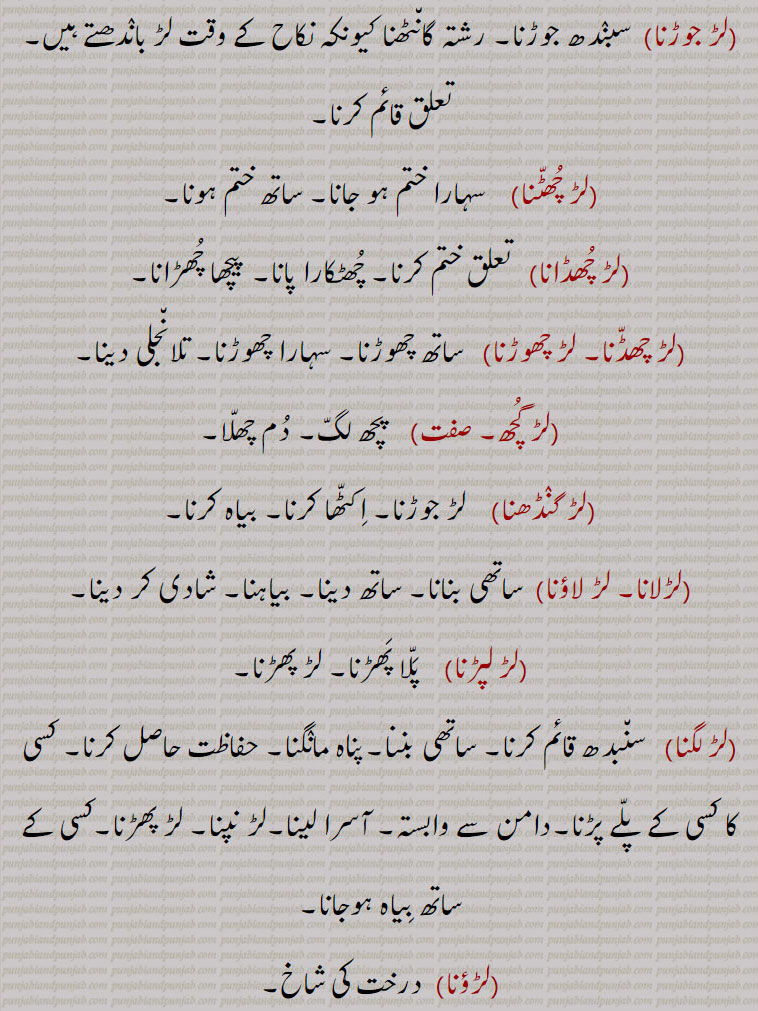 (لڑ جوڑنا) سبنٛدھ جوڑنا۔ رشتہ گانٛٹھنا کیونکہ نکاح کے وقت لڑ بانٛدھتے ہیں۔
تعلق قائم کرنا۔
(لڑ چُھٹّنا) سہارا ختم ہو جانا۔ ساتھ ختم ہونا۔
(لڑ چُھڈانا) تعلق ختم کرنا۔ چُھٹکارا پانا۔ پیچھا چُھڑانا۔
(لڑ چھڈّنا۔ لڑ چھوڑنا) ساتھ چھوڑنا۔ سہارا چھوڑنا۔ تلانٛجلی دینا۔
(لڑ گُچھ۔ صفت) پچھ لگّ۔ دُم چھلّا۔
(لڑ گنٛڈھنا) لڑ جوڑنا۔ اِکٹّھا کرنا۔ بیاہ کرنا۔
(لڑلانا۔ لڑ لاؤنا) ساتھی بنانا۔ ساتھ دینا۔ بیاہنا۔ شادی کر دینا۔
(لڑ لپڑنا) پَلّا پَھڑنا۔ لڑ پھڑنا۔
(لڑ لگنا) سنٛبدھ قائم کرنا۔ ساتھی بننا۔ پناہ مانٛگنا۔ حفاظت حاصل کرنا۔ کسی
کا کسی کے پلّے پڑنا۔ دامن سے وابستہ۔ آسرا لینا۔ لڑ نپنا۔ لڑ پھڑنا۔ کسی کے
ساتھ بِیاہ ہوجانا۔
(لڑؤنا) درخت کی شاخ۔